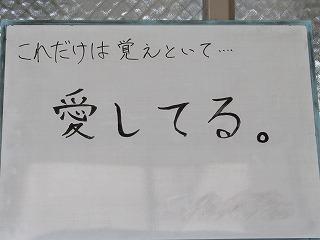 これだけは覚えといて…
愛してる。